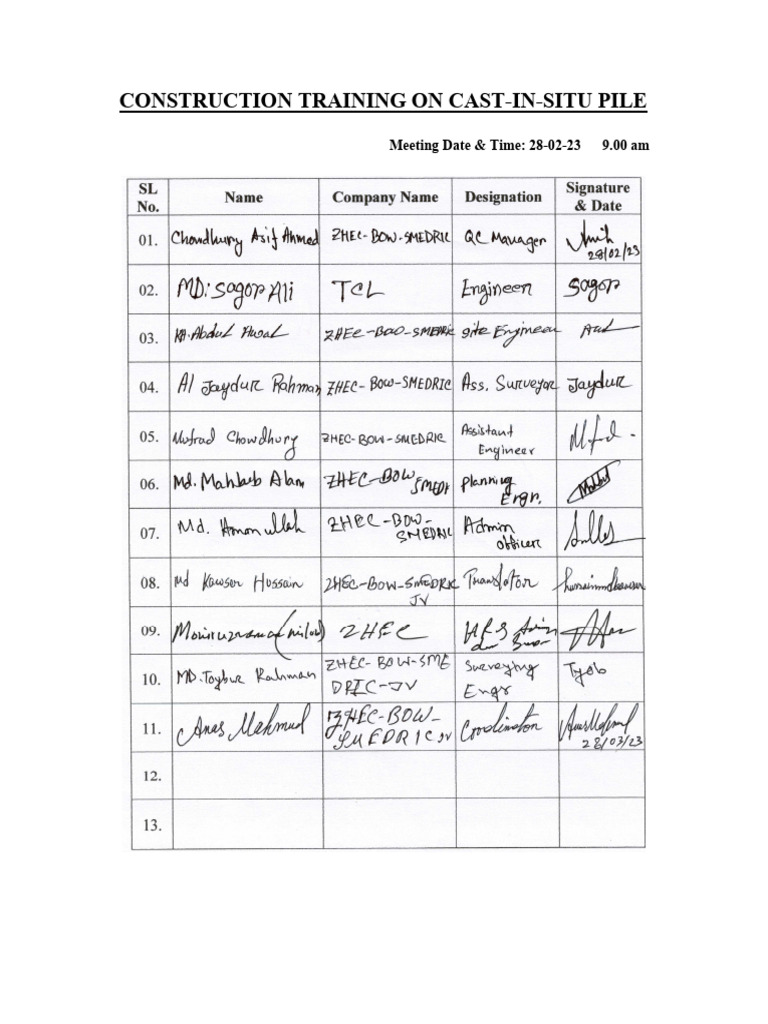 CONSTRUCTION TRAINING ON CAST-IN-SITU PILE
Meeting Date & Time: 28-02-23 9.00 am
SL No. Name Company Name Designation Signature & Date
01. Chowdhury Asif Ahmed ZHEC-BOW-SMEDRIC QC Manager 28/02/23
02. MD: Sagor Ali TCL Engineer Sagor
03. Abdul Awal ZHEC-BOW-SMEDRIC Site Engineer
04. Al Jaydur Rahman ZHEC-BOW-SMEDRIC Ass. Surveyor Jaydur
05. Chowdhury ZHEC-BOW-SMEDRIC Assistant Engineer
06. Md. Mahbub Alam ZHEC-BOW SMEDR Planning Engr.
07. Md. Amanullah ZHEC-BOW-SMEDRIC Admin officer
08. Md Kawser Hossain ZHEC-BOW-SMEDRIC JV Translator
09. ZHEC
10. MD. Toybur Rahman ZHEC-BOW-SMEDRIC-JV Surveying Engr
11. Anas Mahmud ZHEC-BOW-SMEDRIC JV Coordinator 28/03/23
12.
13.